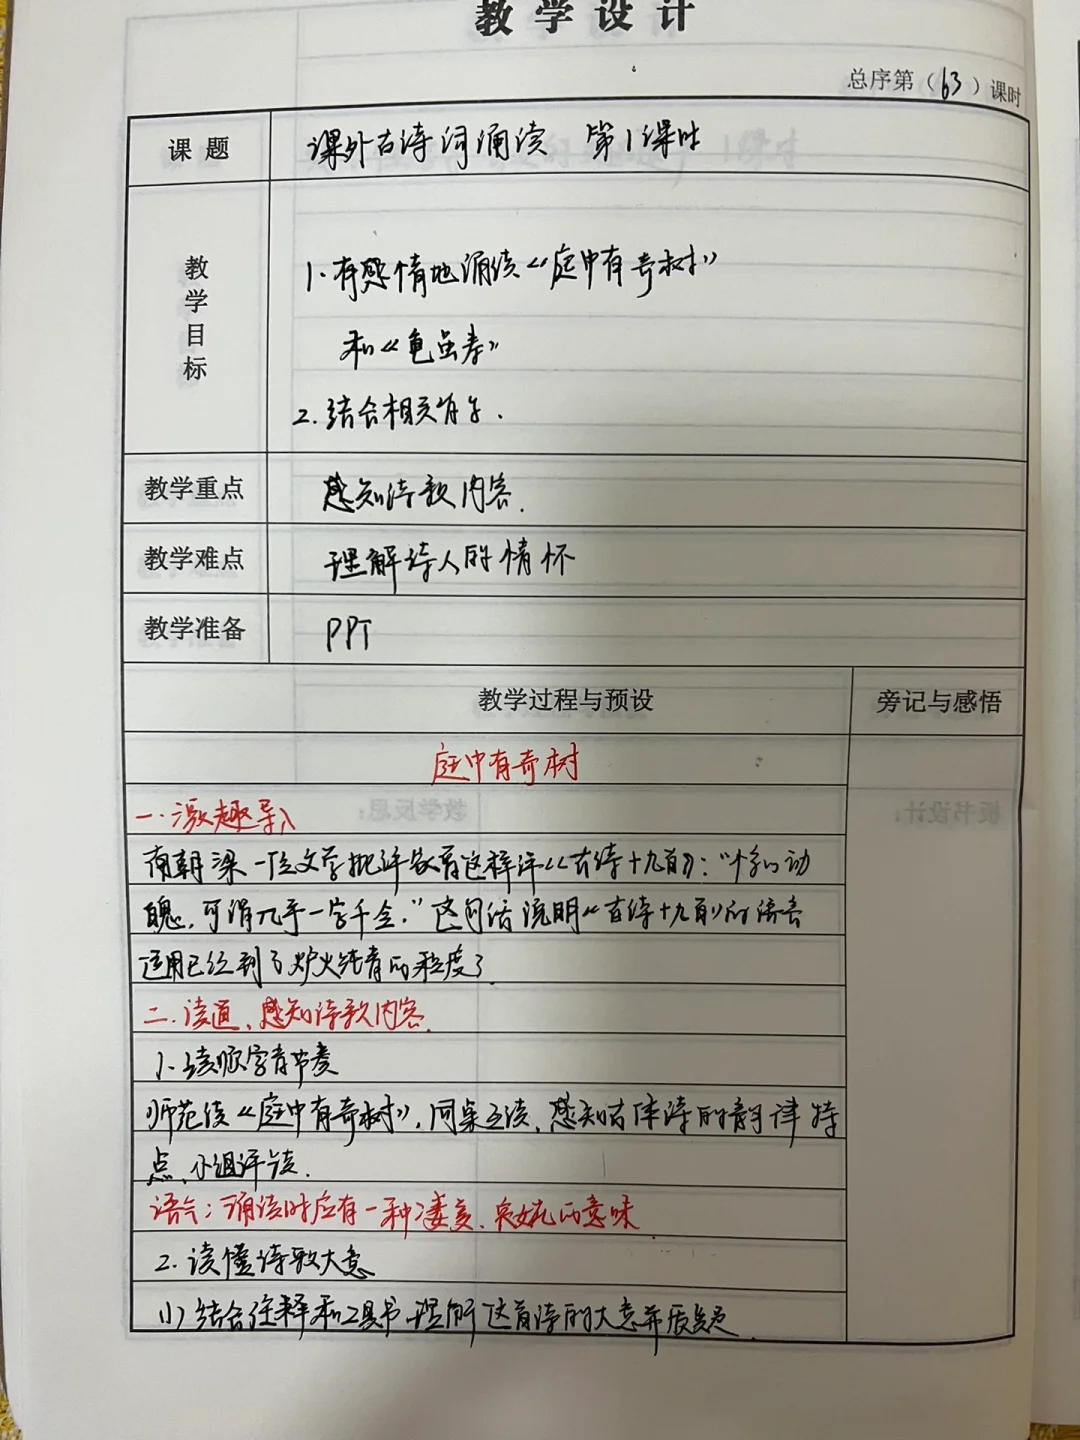 教学设计
总序第（63）课时
课题
课外古诗词诵读 第1课时
教学目标
1. 有感情地诵读《庭中有奇树》
和《龟虽寿》
2. 结合相关
教学重点
感知诗歌内容.
教学难点
理解诗人的情怀
教学准备
PPT
教学过程与预设
旁记与感悟
庭中有奇树
一.激趣导入
南朝梁一位文学批评家曾这样评《古诗十九首》：“
魄，可谓几乎一字千金.”这句话说明《古诗十九首》的语言
运用已经到了炉火纯青的程度了.
二.读通、感知诗歌内容.
1. 读顺字音节奏
师范读《庭中有奇树》，同桌互读，感知古体诗的韵律特
点、小组评读.
语气：诵读时应有一种凄美、哀婉的意味.
2. 读懂诗歌大意
(1) 结合注释和工具书理解这首诗的大意并质疑.